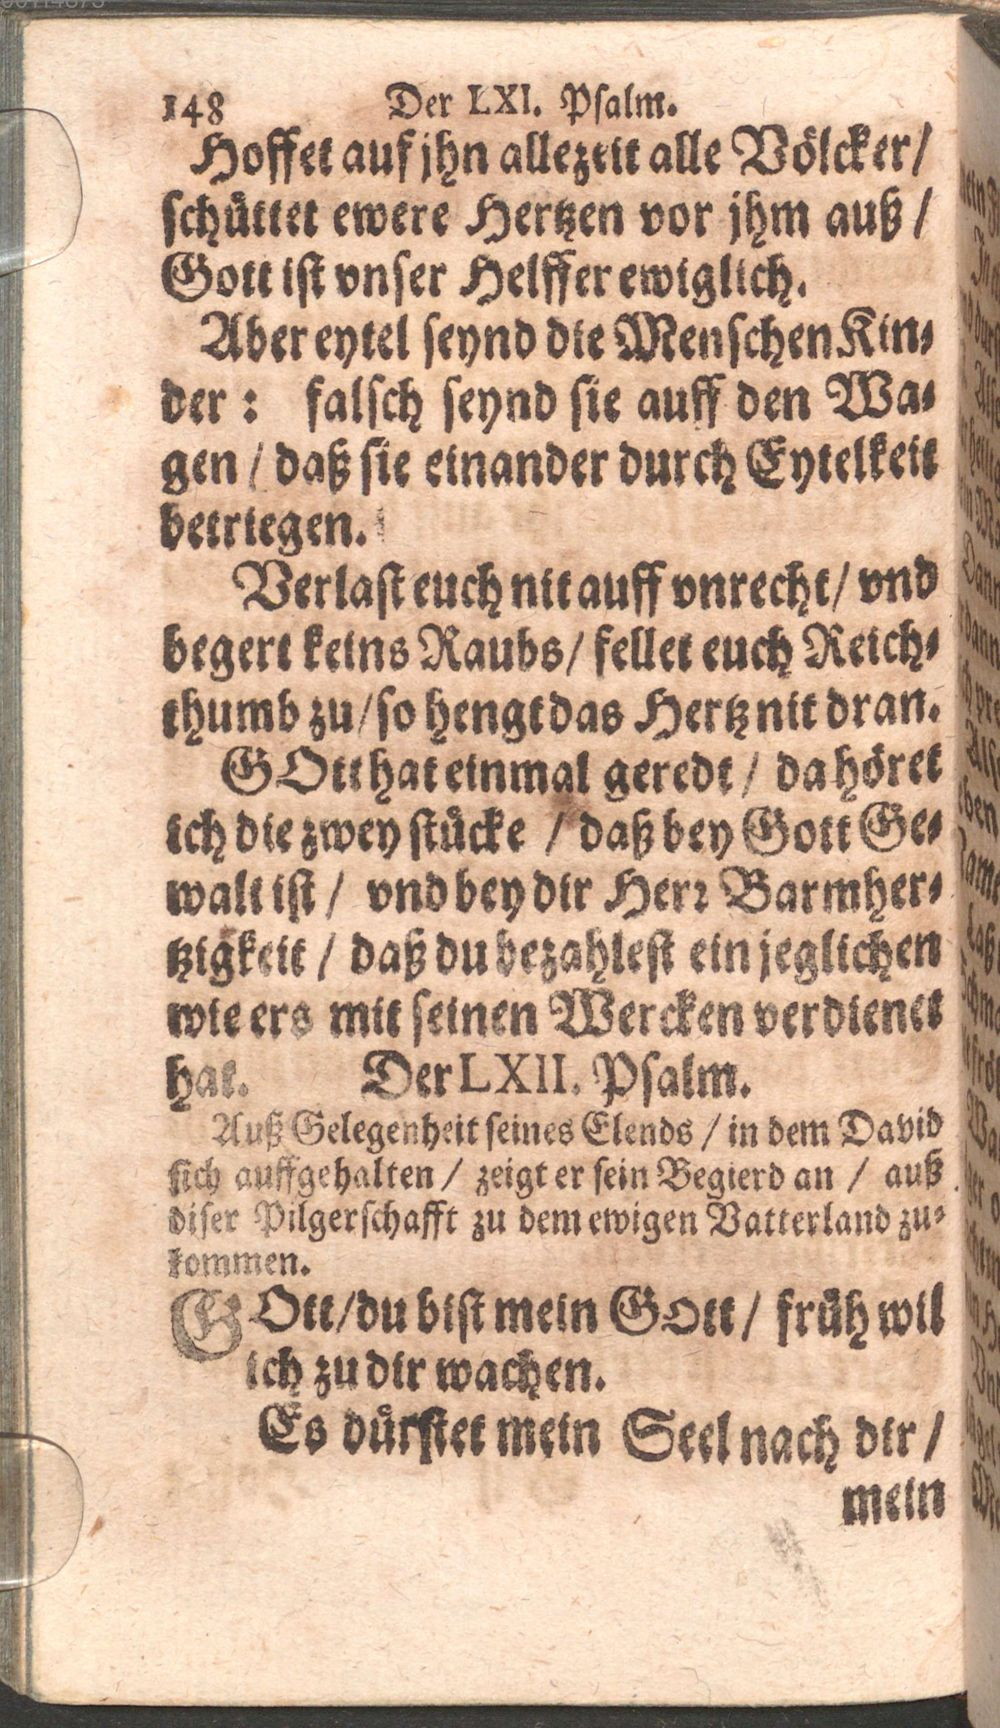 148 Der LXI. Psalm.
Hoffet auf jhn allezeit alle Völcker/
schüttet ewere Hertzen vor jhm auß /
Gott ist vnser Helffer ewiglich.
Aber eytel seynd die Menschen Kin-
der : falsch seynd sie auff den Wa-
gen / daß sie einander durch Eytelkeit
betriegen.
Verlast euch nit auff vnrecht/ vnd
begert keins Raubs/ fellet euch Reich-
thumb zu/ so hengt das Hertz nit dran.
GOtt hat einmal geredt / da höret
ich die zwey stücke / daß bey Gott Ge-
walt ist / vnd bey dir Herr Barmher-
tzigkeit / daß du bezahlest ein jeglichen
wie ers mit seinen Wercken verdienet
hat. Der LXII. Psalm.
Auß Gelegenheit seines Elends / in dem David
sich auffgehalten / zeigt er sein Begierd an / auß
diser Pilgerschafft zu dem ewigen Vatterland zu-
kommen.
GOtt/ du bist mein GOtt / früh wil
ich zu dir wachen.
Es dürstet mein Seel nach dir /
mein